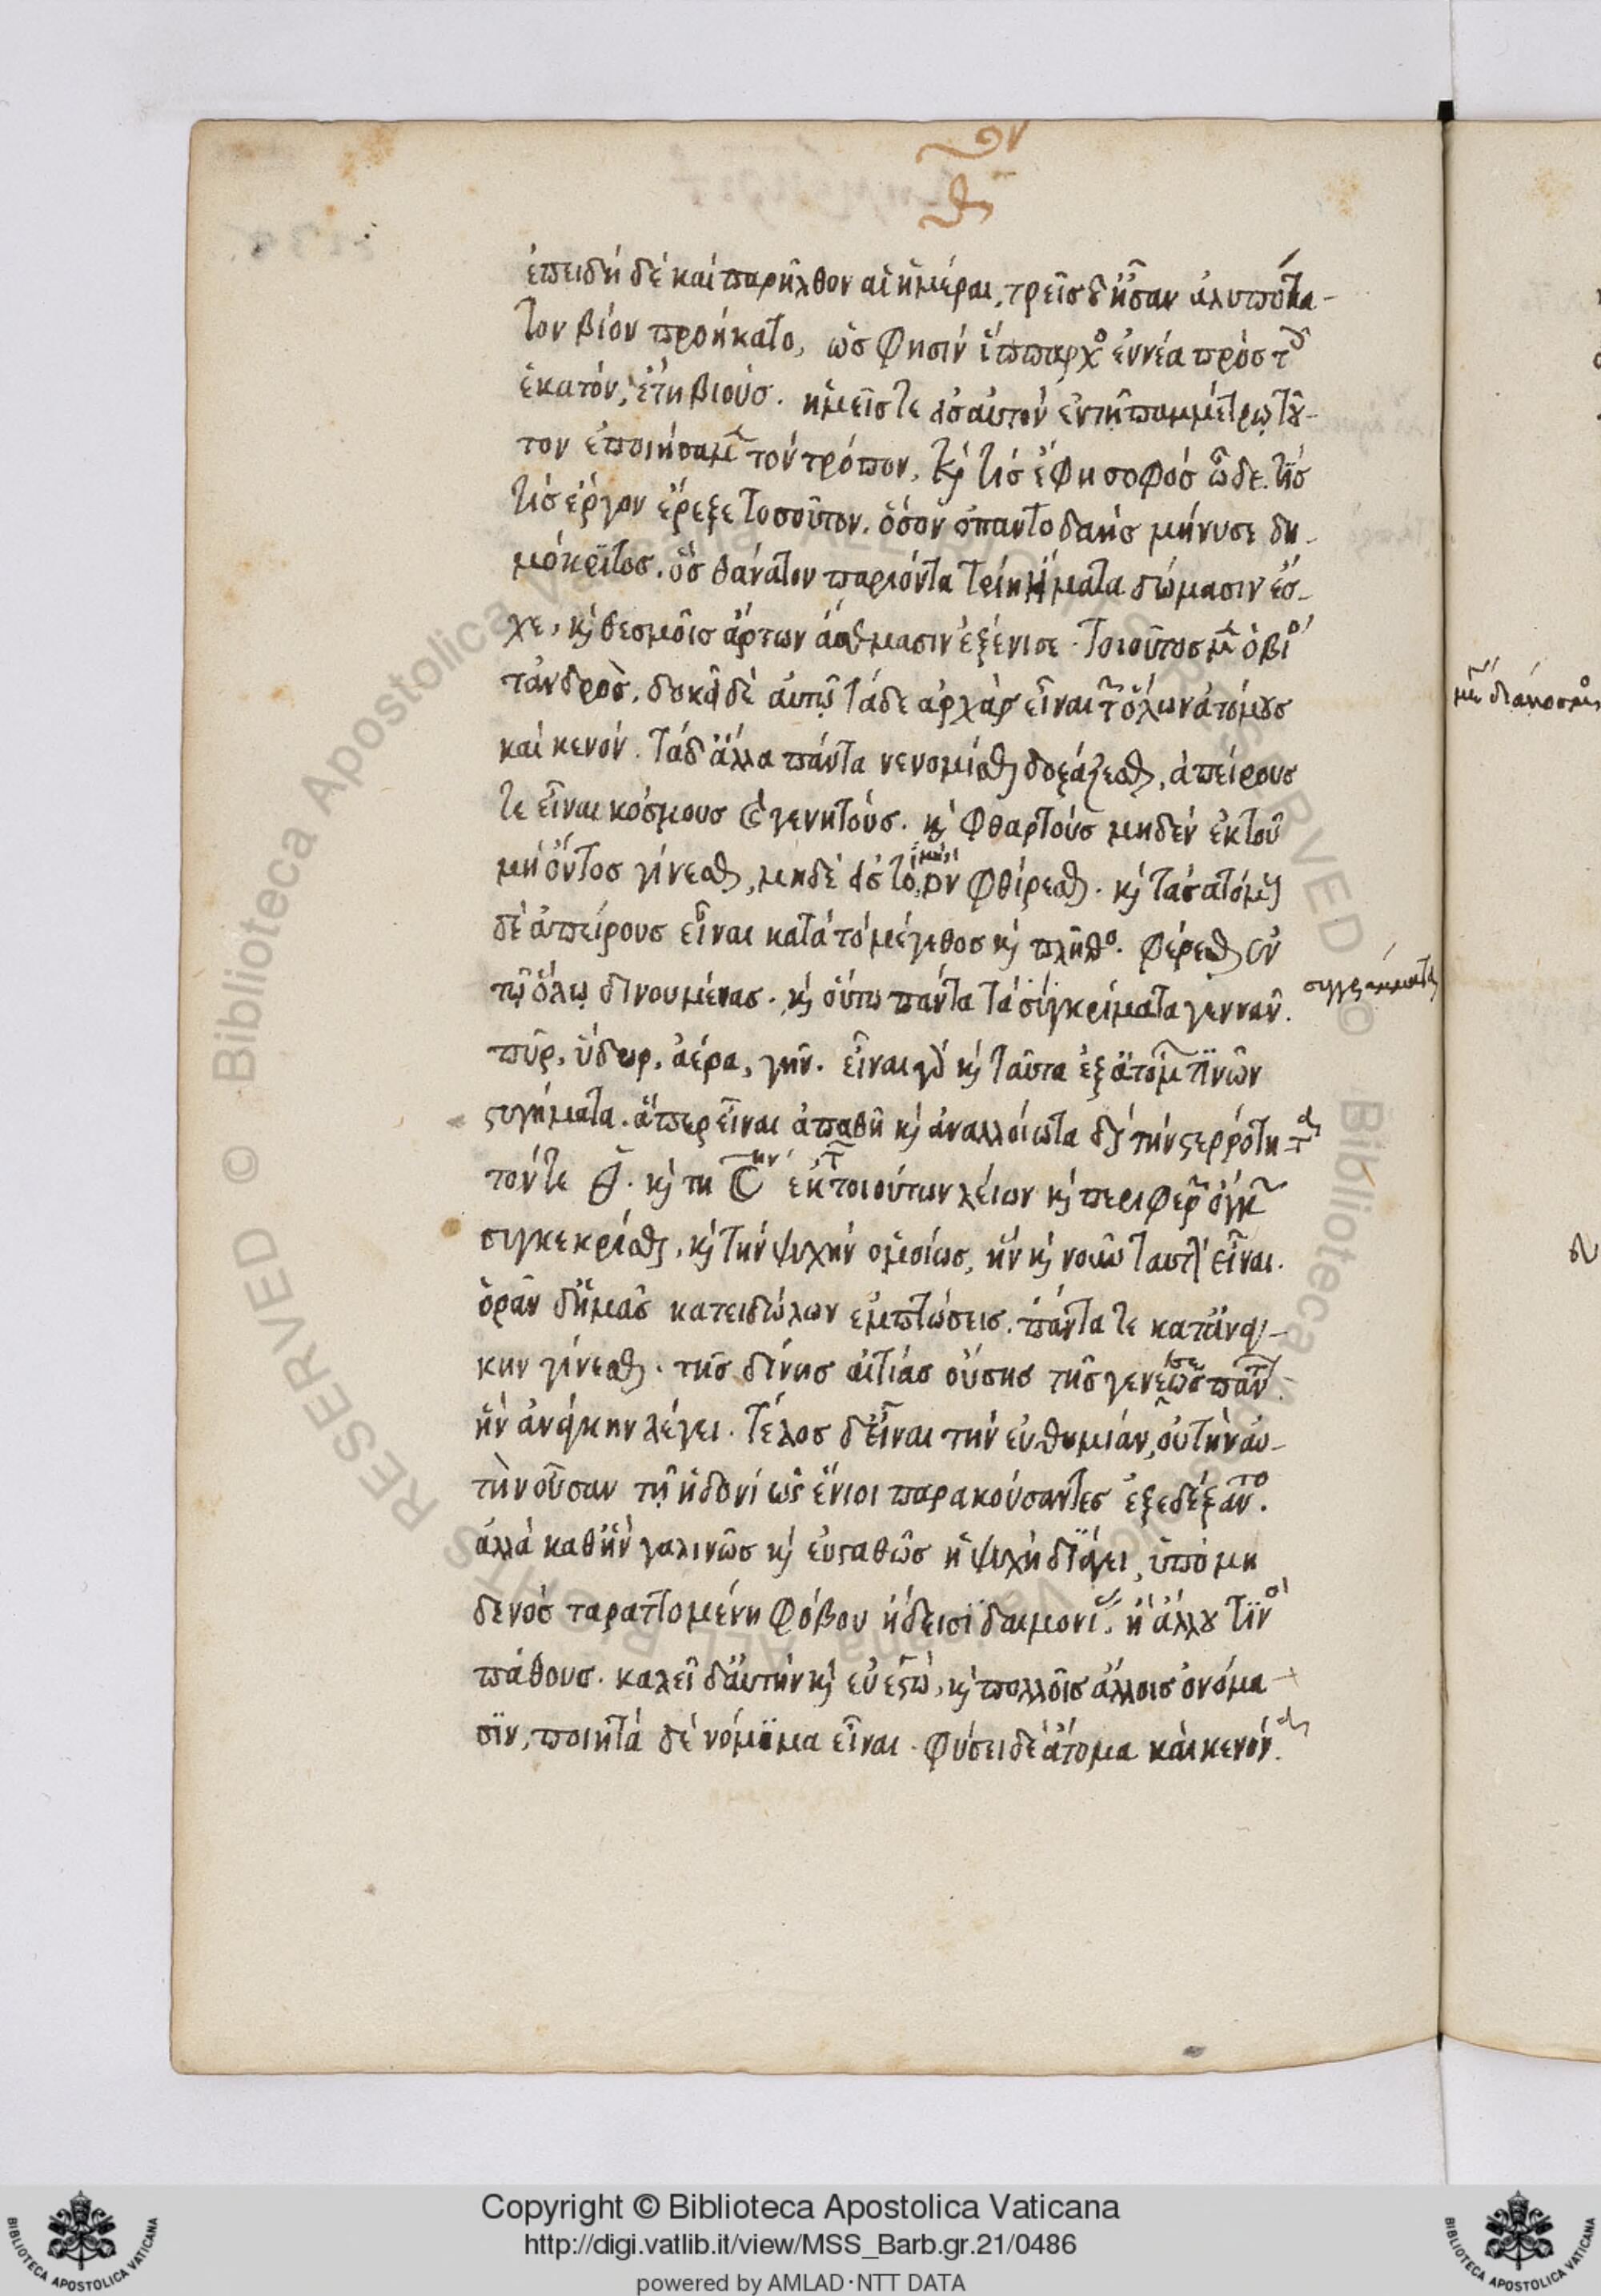 ἐπειδὴ δὲ καὶ παρῆλθον αἱ ἡμέραι, τρεῖς δ' ἦσαν ἀλυπότα-
τον βίον προήκατο, ὥς φησιν ἵππαρχο ἐννέα πρὸς τ
ἑκατόν, ἔτη βιούς. ἡμεῖς τε εἰς αὐτὸν ἐν τῇ παμμέτρῳ τοῦ-
τον ἐποιήσαμ τὸν τρόπον, καὶ τίς ἔφη σοφὸς ὧδε. τίς
τίς ἔργον ἔρεξε τοσοῦτον. ὅσον ὁ παντοδαὴς μήνυσε δη-
μόκριτος. ὃς θάνατον παριόντα τρί' ἤματα δώμασιν ἔσ-
χε, καὶ θεσμοῖς ἄρτων ἄσθμασιν ἐξένισε. Τοιοῦτος μὲν ὁ βί
τἀνδρός. δοκεῖ δὲ αὐτῷ τάδε ἀρχὰς εἶναι τῶν ὅλων ἀτόμους
καὶ κενόν. τὰ δ' ἄλλα πάντα νενομίσθαι δοξάζεσθαι, ἀπείρους
τε εἶναι κόσμους καὶ γενητούς. καὶ φθαρτοὺς μηδὲν ἐκ τοῦ
μὴ ὄντος γίνεσθαι, μηδὲ εἰς τὸ μὴ ὂν φθίρεσθαι. καὶ τὰς ἀτόμους
δὲ ἀπείρους εἶναι κατὰ τὸ μέγεθος καὶ πλῆθο. φέρεσθαι ἐν
τῷ ὅλῳ δινουμένας. καὶ οὕτω πάντα τὰ σιγκρίματα γεννᾶν.
πῦρ, ὕδωρ, ἀέρα, γῆν. εἶναι γὰρ καὶ ταῦτα ἐξ ἀτόμ τινῶν
συγήματα. ἅπερ εἶναι ἀπαθῆ καὶ ἀναλλοίωτα διὰ τὴν στερρότητα
τόν τε ἥλιον. καὶ τὴν σελήνην ἐκ τοιούτων λείων καὶ περιφερῶν ὄγκων
σιγκεκρίσθαι, καὶ τὴν ψυχὴν ὁμοίως, ἣν καὶ νοῦν ταυτὸ εἶναι.
ὁρᾶν δ' ἡμᾶς κατ' ειδώλων ἐμπτώσεις. πάντα τε κατ' ἀνάγ-
κην γίνεσθαι. τῆς δίνης αἰτίας οὔσης τῆς γενέσεως πάντων
ἣν ἀνάγκην λέγει. Τέλος δ' εἶναι τὴν εὐθυμίαν, οὐ τὴν αὐ-
τὴν οὖσαν τῇ ἡδονῇ ὡς ἔνιοι παρακούσαντες ἐξεδέξαντο.
ἀλλὰ καθ' ἣν γαλινῶς καὶ εὐσταθῶς ἡ ψυχὴ διάγει, ὑπὸ μη
δενὸς ταραττομένη φόβου ἢ δεισιδαιμονίας, ἢ ἄλλου τινὸς
πάθους. καλεῖ δ' αὐτὴν καὶ εὐεστώ, καὶ πολλοῖς ἄλλοις ὀνόμα
σιν, ποιητὰ δὲ νόμιμα εἶναι. φύσει δὲ ἄτομα καὶ κενόν.
συγγράμματα
Copyright © Biblioteca Apostolica Vaticana
http://digi.vatlib.it/view/MSS_Barb.gr.21/0486
powered by AMLAD·NTT DATA
BIBLIOTECA APOSTOLICA VATICANA
BIBLIOTECA APOSTOLICA VATICANA